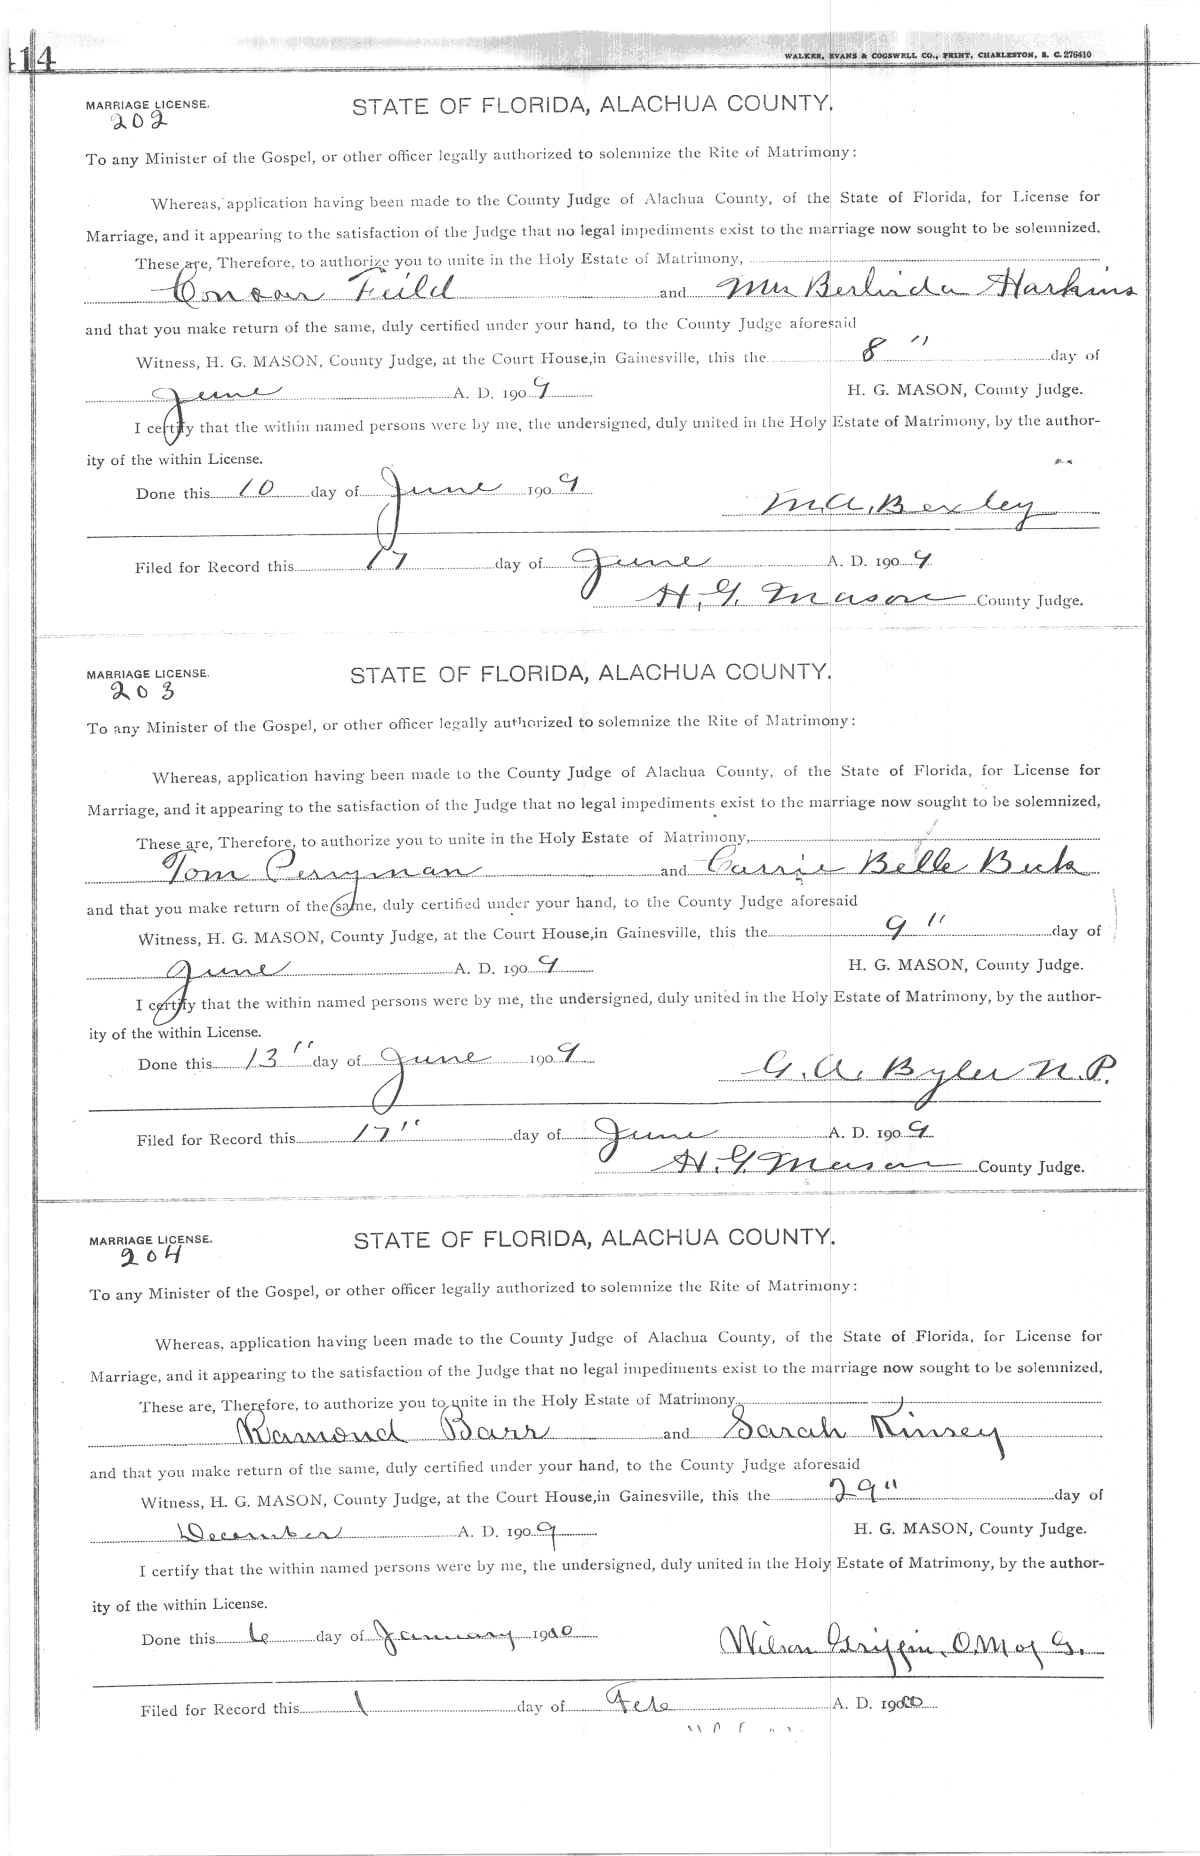 414
WALKER, EVANS & COGSWELL CO., PRINT, CHARLESTON, S. C. 276410
MARRIAGE LICENSE. STATE OF FLORIDA, ALACHUA COUNTY.
202
To any Minister of the Gospel, or other officer legally authorized to solemnize the Rite of Matrimony:
Whereas, application having been made to the County Judge of Alachua County, of the State of Florida, for License for
Marriage, and it appearing to the satisfaction of the Judge that no legal impediments exist to the marriage now sought to be solemnized.
These are, Therefore, to authorize you to unite in the Holy Estate of Matrimony,
Feild and Mrs Berlinda Harkins
and that you make return of the same, duly certified under your hand, to the County Judge aforesaid
Witness, H. G. MASON, County Judge, at the Court House, in Gainesville, this the 8" day of
June A. D. 1909 H. G. MASON, County Judge.
I certify that the within named persons were by me, the undersigned, duly united in the Holy Estate of Matrimony, by the author-
ity of the within License.
Done this 10 day of June 1909
M. A. Bexley
Filed for Record this 17 day of June A. D. 1909
H. G. Mason County Judge.
MARRIAGE LICENSE. STATE OF FLORIDA, ALACHUA COUNTY.
203
To any Minister of the Gospel, or other officer legally authorized to solemnize the Rite of Matrimony:
Whereas, application having been made to the County Judge of Alachua County, of the State of Florida, for License for
Marriage, and it appearing to the satisfaction of the Judge that no legal impediments exist to the marriage now sought to be solemnized,
These are, Therefore, to authorize you to unite in the Holy Estate of Matrimony,
Tom Perryman and Carrie Belle Beck
and that you make return of the same, duly certified under your hand, to the County Judge aforesaid
Witness, H. G. MASON, County Judge, at the Court House, in Gainesville, this the 9" day of
June A. D. 1909 H. G. MASON, County Judge.
I certify that the within named persons were by me, the undersigned, duly united in the Holy Estate of Matrimony, by the author-
ity of the within License.
Done this 13" day of June 1909
G. A. Byler N. P.
Filed for Record this 17" day of June A. D. 1909
H. G. Mason County Judge.
MARRIAGE LICENSE. STATE OF FLORIDA, ALACHUA COUNTY.
204
To any Minister of the Gospel, or other officer legally authorized to solemnize the Rite of Matrimony:
Whereas, application having been made to the County Judge of Alachua County, of the State of Florida, for License for
Marriage, and it appearing to the satisfaction of the Judge that no legal impediments exist to the marriage now sought to be solemnized,
These are, Therefore, to authorize you to unite in the Holy Estate of Matrimony,
Ramond Barr and Sarah Kinsey
and that you make return of the same, duly certified under your hand, to the County Judge aforesaid
Witness, H. G. MASON, County Judge, at the Court House, in Gainesville, this the 29" day of
December A. D. 1909 H. G. MASON, County Judge.
I certify that the within named persons were by me, the undersigned, duly united in the Holy Estate of Matrimony, by the author-
ity of the within License.
Done this 6 day of January 1910
Wilson Griffin, O. M of G.
Filed for Record this 1 day of Feb A. D. 1910